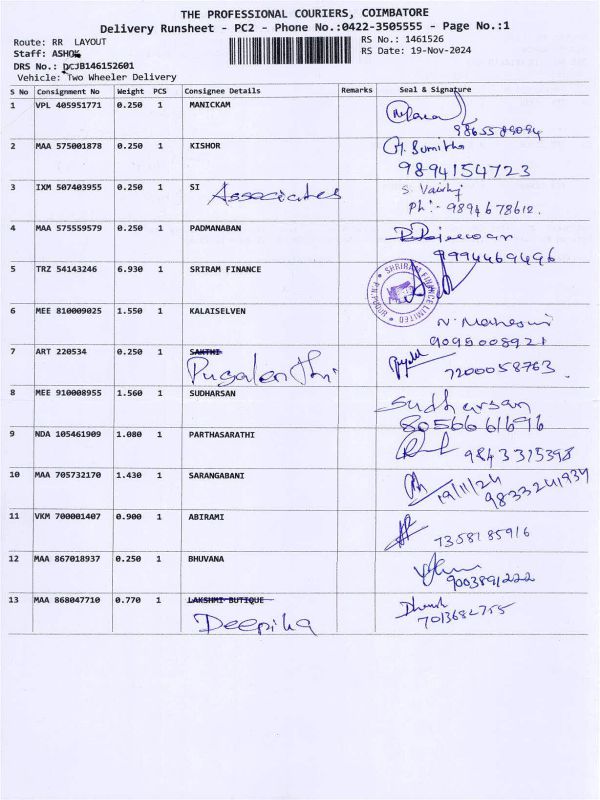 THE PROFESSIONAL COURIERS, COIMBATORE
Delivery Runsheet - PC2 - Phone No.:0422-3505555 - Page No.:1
Route: RR LAYOUT
RS No.: 1461526
Staff: ASHOK
RS Date: 19-Nov-2024
DRS No.: DCJB146152601
Vehicle: Two Wheeler Delivery
S No Consignment No Weight PCS Consignee Details Remarks Seal & Signature
1 VPL 405951771 0.250 1 MANICKAM
2 MAA 575001878 0.250 1 KISHOR H. Sumitha
9894154723
3 IXM 507403955 0.250 1 SI Associates S. Vaishj
Ph :- 9894678612.
4 MAA 575559579 0.250 1 PADMANABAN
9994469496
5 TRZ 54143246 6.930 1 SRIRAM FINANCE SHRIRAM FINANCE LIMITED
6 MEE 810009025 1.550 1 KALAISELVEN
9095008921
7 ART 220534 0.250 1 SAKTHI
Pugalenthi 7200058763
8 MEE 910008955 1.560 1 SUDHARSAN Sudharsan
8056661696
9 NDA 105461909 1.080 1 PARTHASARATHI 9843375398
10 MAA 705732170 1.430 1 SARANGABANI 19/11/24
9833241934
11 VKM 700001407 0.900 1 ABIRAMI
7358185916
12 MAA 867018937 0.250 1 BHUVANA
9003891222
13 MAA 868047710 0.770 1 LAKSHMI BUTIQUE
Deepika 7013682755